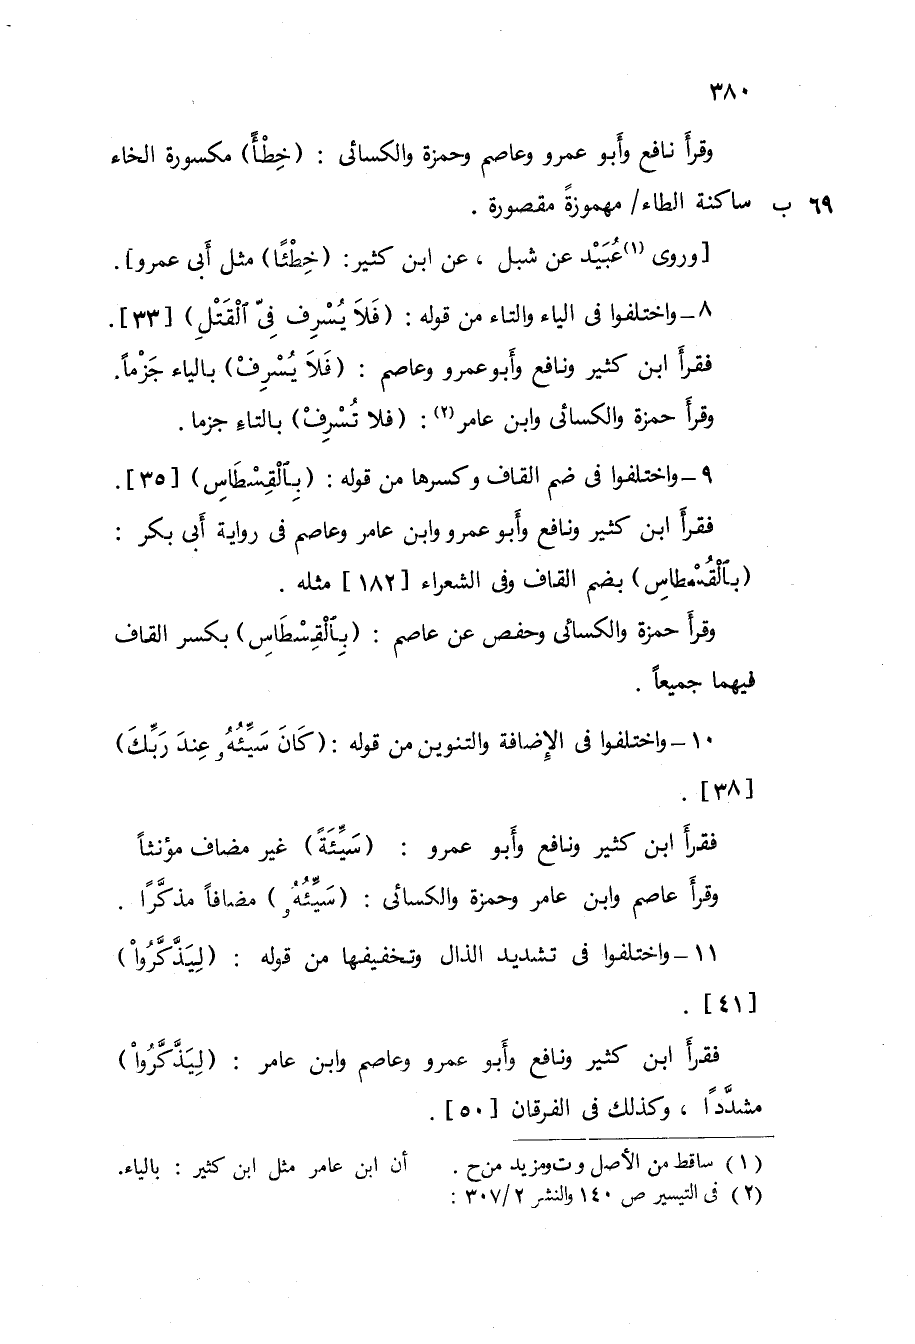 ٣٨٠
وقرأ نافع وأبو عمرو وعاصم وحمزة والكسائى : (خِطْأً) مكسورة الخاء
٦٩ ب ساكنة الطاء/ مهموزةً مقصورة .
[وروى (١) عُبَيْد عن شبل ، عن ابن كثير: (خِطْئًا) مثل أبى عمرو].
٨ ــ واختلفوا فى الياء والتاء من قوله : (فَلاَ يُسْرِف فِّى ٱلْقَتْلِ) [٣٣].
فقرأ ابن كثير ونافع وأبوعمرو وعاصم : (فَلاَ يُسْرِفْ) بالياء جَزْماً.
وقرأ حمزة والكسائى وابن عامر (٢) : (فلا تُسْرِفْ) بالتاء جزما .
٩ ــ واختلفوا فى ضم القاف وكسرها من قوله : (بِٱلْقِسْطَاسِ) [٣٥].
فقرأ ابن كثير ونافع وأبو عمرو وابن عامر وعاصم فى رواية أبى بكر :
(بِٱلْقُسْطاسِ) بضم القاف وفى الشعراء [١٨٢] مثله .
وقرأ حمزة والكسائى وحفص عن عاصم : (بِٱلْقِسْطَاسِ) بكسر القاف
فيهما جميعاً .
١٠ ــ واختلفوا فى الإضافة والتنوين من قوله : (كَانَ سَيِّئُهُۥ عِندَ رَبِّكَ)
[٣٨] .
فقرأ ابن كثير ونافع وأبو عمرو : (سَيِّئَةً) غير مضاف مؤنثاً
وقرأ عاصم وابن عامر وحمزة والكسائى : (سَيِّئُهُۥ) مضافاً مذكَّرًا .
١١ ــ واختلفوا فى تشديد الذال وتخفيفها من قوله : (لِيَذَّكَّرُواْ)
[٤١] .
فقرأ ابن كثير ونافع وأبو عمرو وعاصم وابن عامر : (لِيَذَّكَّرُواْ)
مشدَّدًا ، وكذلك فى الفرقان [٥٠] .
(١) ساقط من الأصل و ت ومزيد من ح . أن ابن عامر مثل ابن كثير : بالياء.
(٢) فى التيسير ص ١٤٠ والنشر ٣٠٧/٢ :